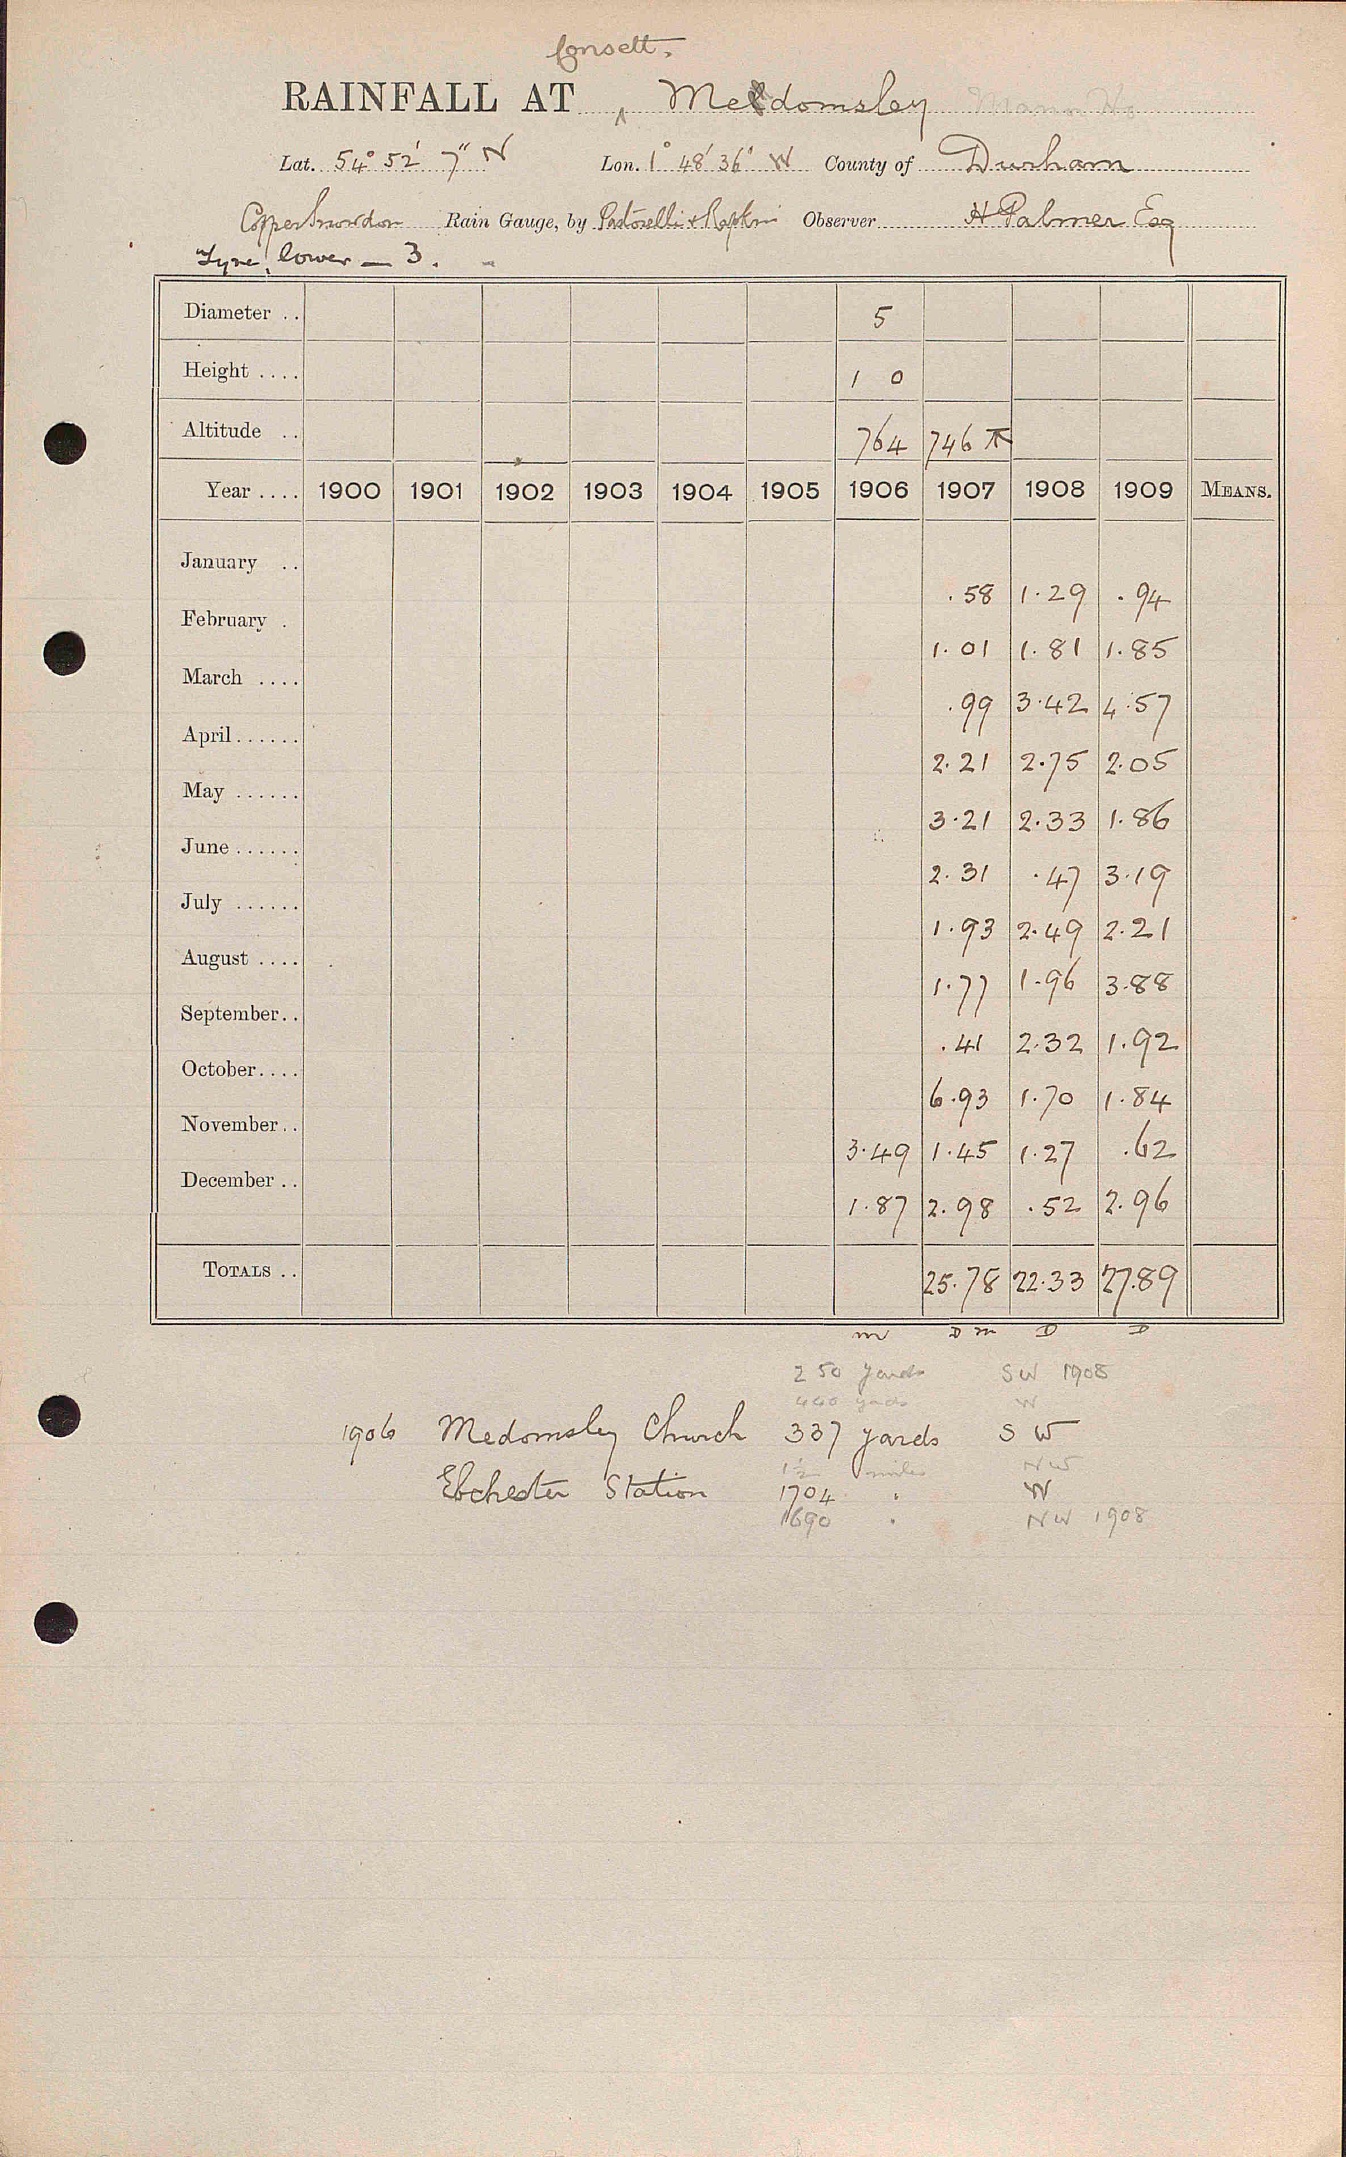 Consett.
RAINFALL AT Medomsley
Lat. 54° 52' 7" N Lon. 1° 48' 36" W County of Durham
Copper Snowdon Rain Gauge, by Pastorelli & Rapkin Observer H Palmer Esq
Tyne, lower — 3.
Diameter .. 5
Height .... 1 0
Altitude .. 764 746
Year .... 1900 1901 1902 1903 1904 1905 1906 1907 1908 1909 MEANS.
January .. .58 1.29 .94
February . 1.01 1.81 1.85
March .... .99 3.42 4.57
April ...... 2.21 2.75 2.05
May ...... 3.21 2.33 1.86
June ...... 2.31 .47 3.19
July ...... 1.93 2.49 2.21
August .... 1.77 1.96 3.88
September.. .41 2.32 1.92
October.... 6.93 1.70 1.84
November.. 3.49 1.45 1.27 .62
December .. 1.87 2.98 .52 2.96
TOTALS .. 25.78 22.33 27.89
m D m D D
250 yards SW 1908
440 yards W
1906 Medomsley Church 337 yards S W
1½ miles NW
Ebchester Station 1704 " W
1690 " NW 1908